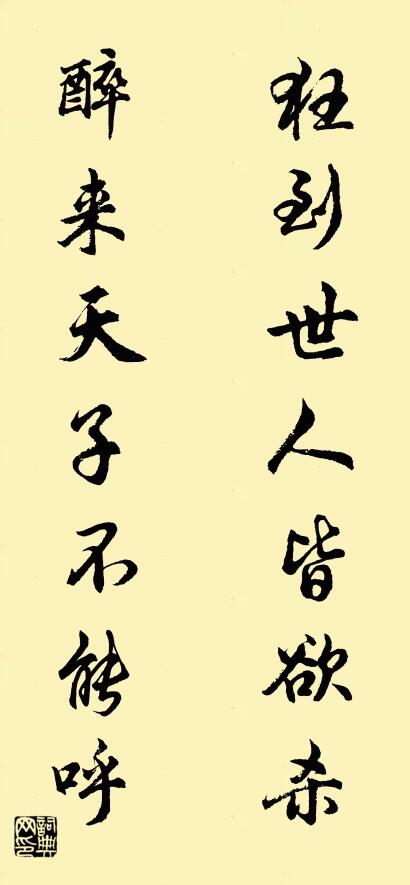 狂到世人皆欲杀
醉来天子不能呼
詞典
网印